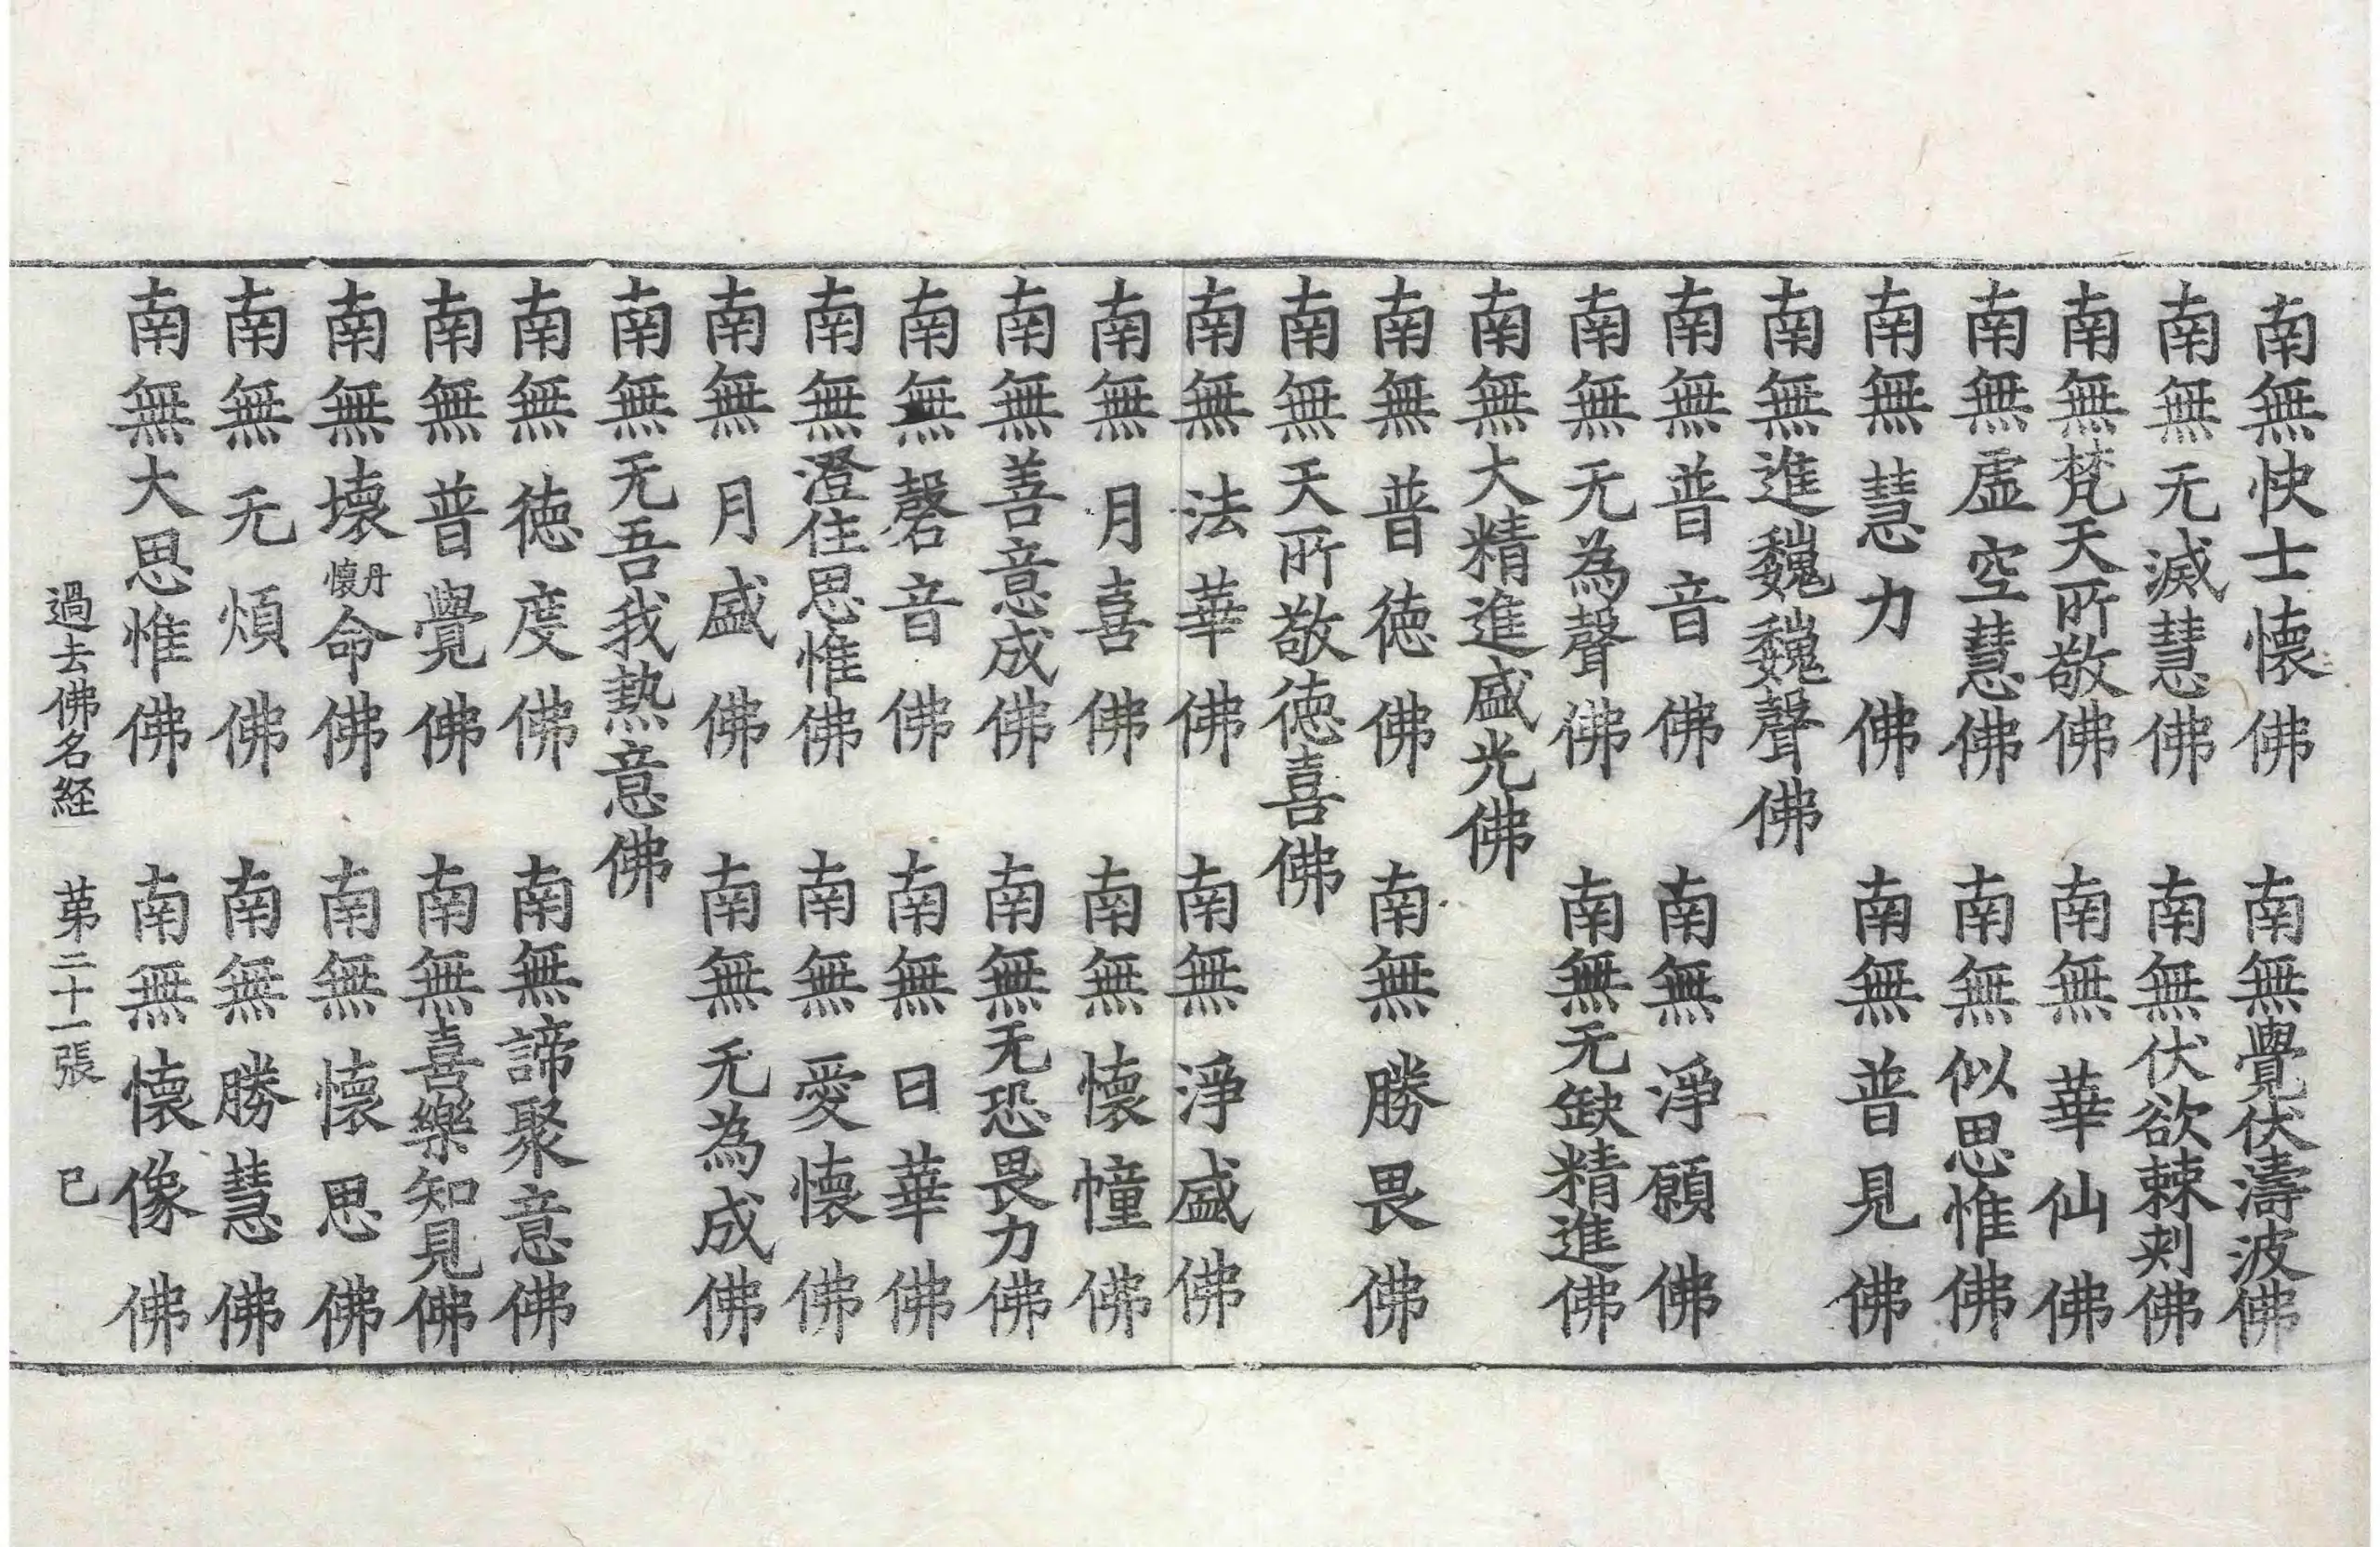 南無快士懷佛　南無覺伏濤波佛
南無无滅慧佛　南無伏欲棘刺佛
南無梵天所敬佛　南無華仙佛
南無虛空慧佛　南無似思惟佛
南無慧力佛　南無普見佛
南無進巍巍聲佛
南無普音佛　南無淨願佛
南無无為聲佛　南無无缺精進佛
南無大精進盛光佛
南無普德佛　南無勝畏佛
南無天所敬德喜佛
南無法華佛　南無淨盛佛
南無月喜佛　南無懷幢佛
南無善意成佛　南無无恐畏力佛
南無磬音佛　南無日華佛
南無澄住思惟佛　南無愛懷佛
南無月盛佛　南無无為成佛
南無无吾我熱意佛
南無德度佛　南無諦聚意佛
南無普覺佛　南無喜樂知見佛
南無壞丹懷命佛　南無懷思佛
南無无煩佛　南無勝慧佛
南無大思惟佛　南無懷像佛
過去佛名経　苐二十一張　己